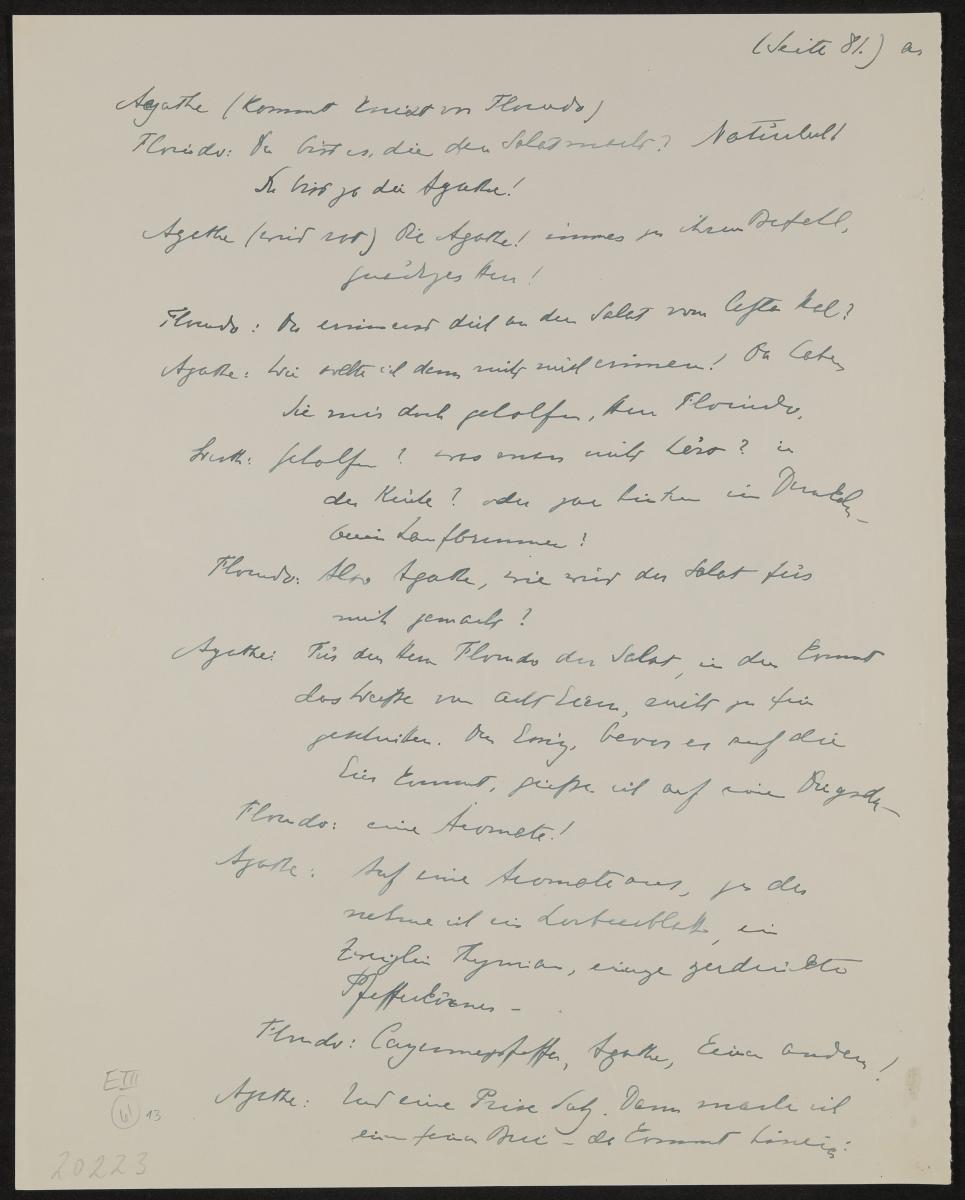 (Seite 81.) a.
Agathe (kommt knixt vor Florindo)
Florindo: Du bist es, die den Salat macht? Natürlich!
Du bist ja die Agathe!
Agathe (wird rot) Die Agathe! immer zu ihrem Befehl,
gnädiger Herr!
Florindo: Du erinnerst dich an den Salat vom letzten Mal?
Agathe: Wie sollte ich denn nicht mich erinnern! Da haben
Sie mir doch geholfen, Herr Florindo.
Wirth: geholfen? was man nicht hört? in
der Küche? oder gar hinten im Dunkeln
beim Laufbrunnen?
Florindo: Also Agathe, wie wird der Salat für
mich gemacht?
Agathe: Für den Herrn Florindo der Salat, in den kommt
das Weisse von acht Eiern, nicht zu fein
geschnitten. Den Essig, bevor er auf die
Eier kommt, giesse ich auf eine
Florindo: eine Aromate!
Agathe: Auf eine Aromate aus, zu der
nehme ich ein Lorbeerblatt, ein
Zweiglein Thymian, einige zerdrückte
Pfefferkörner –
Florindo: Cayennepfeffer, Agathe, keinen andern!
Agathe: Und eine Prise Salz. Dann mache ich
einen feinen Brei – da kommt hinein:
E III
13
20223